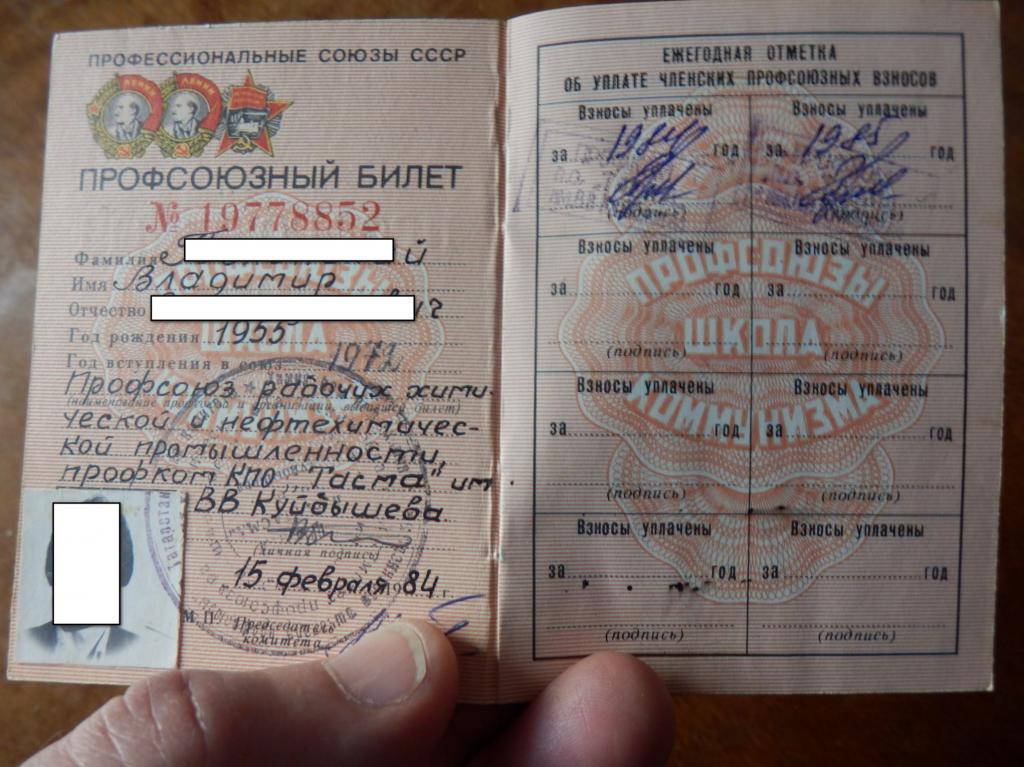 ПРОФЕССИОНАЛЬНЫЕ СОЮЗЫ СССР
ЛЕНИН
ЛЕНИН
ПРОФСОЮЗНЫЙ БИЛЕТ
№ 19778852
Фамилия й
Имя Владимир
Отчество
Год рождения 1955
Год вступления в союз
Профсоюз рабочих хими-
(наименование профсоюза и организации, выдавшей билет)
ческой и нефтехимичес-
кой промышленности,
профком КПО "Тасма" им
ВВ Куйбышева
(личная подпись)
15 февраля 1984 г.
М. П. Председатель
комитета
ПРОФСОЮЗЫ
ШКОЛА
КОММУНИЗМА
ЕЖЕГОДНАЯ ОТМЕТКА
ОБ УПЛАТЕ ЧЛЕНСКИХ ПРОФСОЮЗНЫХ ВЗНОСОВ
Взносы уплачены Взносы уплачены
за 1984 год за 1985 год
(подпись) (подпись)
Взносы уплачены Взносы уплачены
за год за год
(подпись) (подпись)
Взносы уплачены Взносы уплачены
за год за год
(подпись) (подпись)
Взносы уплачены Взносы уплачены
за год за год
(подпись) (подпись)